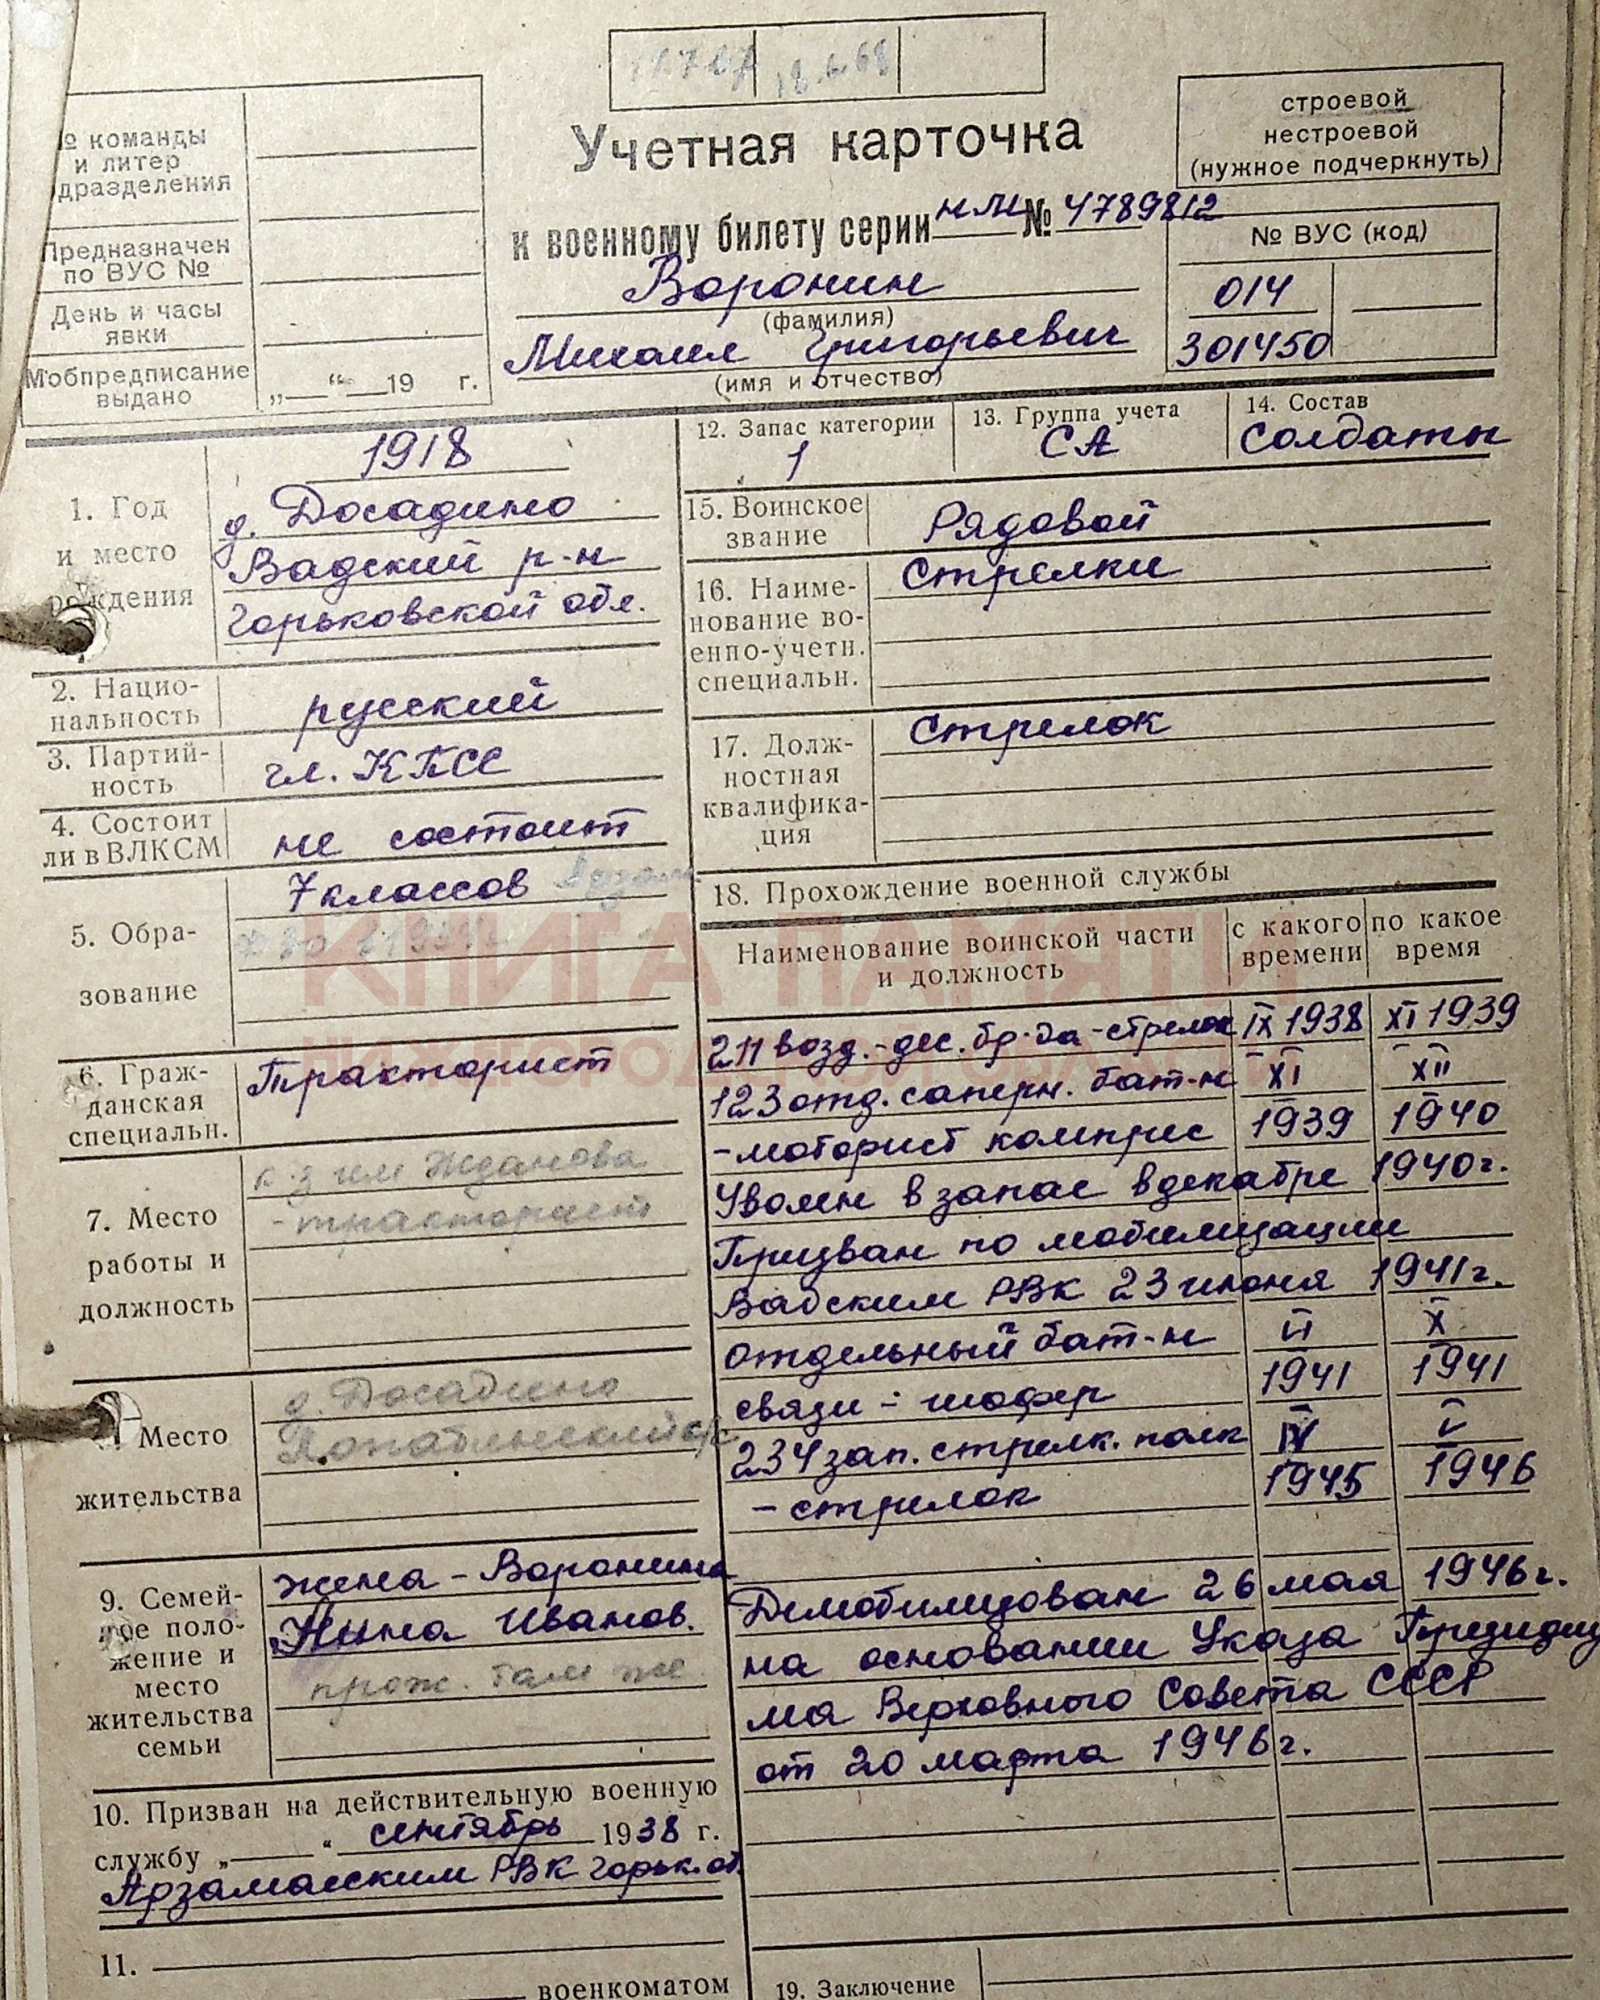 18.6.68
№ команды
и литер
дразделения
Предназначен
по ВУС №
День и часы
явки
Мобпредписание
выдано
„ “ 19 г.
Учетная карточка
к военному билету серии НЛ № 4789812
Воронин
(фамилия)
Михаил Григорьевич
(имя и отчество)
строевой
нестроевой
(нужное подчеркнуть)
№ ВУС (код)
014
301450
1. Год
и место
рождения
1918
д. Досадино
Вадский р-н
Горьковской обл.
2. Нацио-
нальность
русский
3. Партий-
ность
чл. КПСС
4. Состоит
ли в ВЛКСМ
не состоит
5. Обра-
зование
7 классов
6. Граж-
данская
специальн.
Тракторист
7. Место
работы и
должность
к-з им Жданова
- тракторист
Место
жительства
д. Досадино
с/с
9. Семей-
ное поло-
жение и
место
жительства
семьи
жена - Воронина
Нина Иванов.
прож. там же
10. Призван на действительную военную
службу „ “ сентябрь 1938 г.
Арзамасским РВК Горьк. об.
11.
военкоматом
12. Запас категории
1
13. Группа учета
СА
14. Состав
Солдаты
15. Воинское
звание
Рядовой
16. Наиме-
нование во-
енно-учетн.
специальн.
Стрелки
17. Долж-
ностная
квалифика-
ция
Стрелок
18. Прохождение военной службы
Наименование воинской части
и должность
с какого
времени
по какое
время
211 возд.-дес. бр-да - стрелок IX 1938 XI 1939
123 отд. саперн. бат-н XI XII
- моторист компрес 1939 1940
Уволен в запас в декабре 1940г.
Призван по мобилизации
Вадским РВК 23 июня 1941г.
отдельный бат-н VI X
связи - шофер 1941 1941
234 зап. стрелк. полк IV V
- стрелок 1945 1946
Демобилизован 26 мая 1946г.
на основании Указа Президиу
ма Верховного Совета СССР
от 20 марта 1946г.
19. Заключение
КНИГА ПАМЯТИ